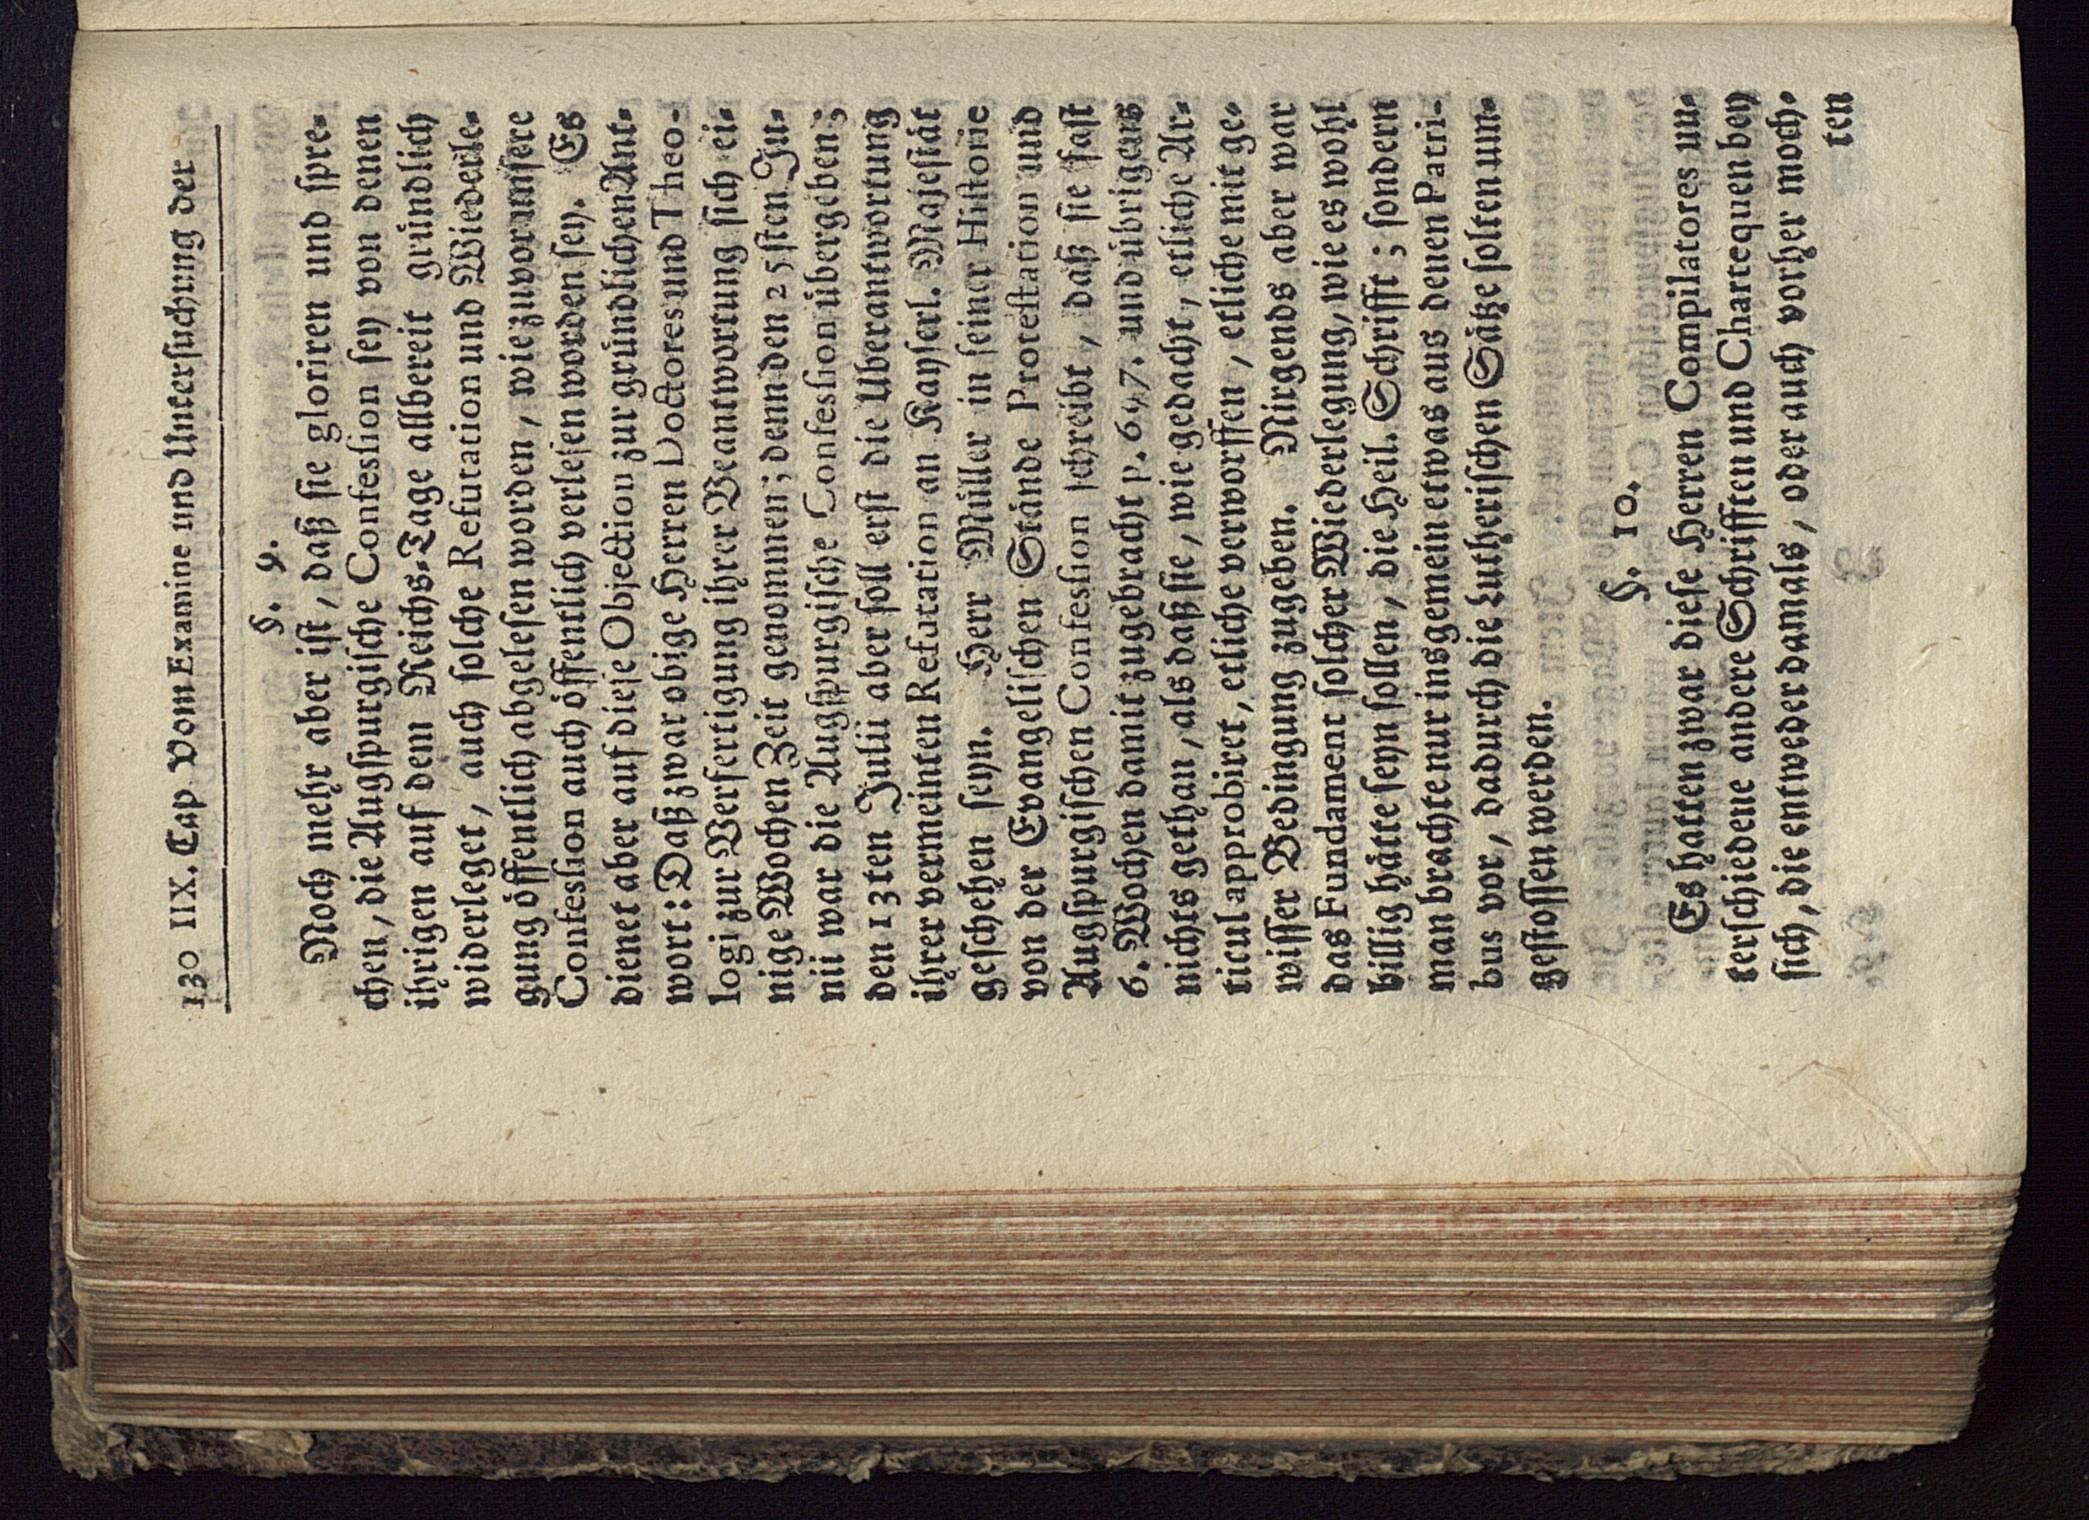 130 IIX. Cap Vom Examine und Untersuchung der
§. 9.
Noch mehr aber ist, daß sie gloriren und spre-
chen, die Augspurgische Confession sey von denen
ihrigen auf dem Reichs-Tage allbereit gründlich
widerleget, auch solche Refutation und Wiederle-
gung öffentlich abgelesen worden, wie zuvor unsere
Confession auch öffentlich verlesen worden sey. Es
dienet aber auf diese Objection zur gründlichen Ant-
wort: Daß zwar obige Herren Doctores und Theo-
logi zur Verfertigung ihrer Beantwortung sich ei-
nige Wochen Zeit genommen; denn den 25sten Ju-
nii war die Augspurgische Confession übergeben;
den 13ten Julii aber soll erst die Uberantwortung
ihrer vermeinten Refutation an Kayserl. Majestät
geschehen seyn. Herr Müller in seiner Historie
von der Evangelischen Stände Protestation und
Augspurgischen Confession schreibt, daß sie fast
6. Wochen damit zugebracht p. 697. und übrigens
nichts gethan, als daß sie, wie gedacht, etliche Ar-
ticul approbiret, etliche verworffen, etliche mit ge-
wisser Bedingung zugeben. Nirgends aber war
das Fundament solcher Wiederlegung, wie es wohl
billig hätte seyn sollen, die Heil. Schrifft; sondern
man brachte nur insgemein etwas aus denen Patri-
bus vor, dadurch die Lutherischen Sätze solten um-
gestossen werden.
§. 10.
Es hatten zwar diese Herren Compilatores un-
terschiedene andere Schrifften und Chartequen bey
sich, die entweder damals, oder auch vorher moch-
ten